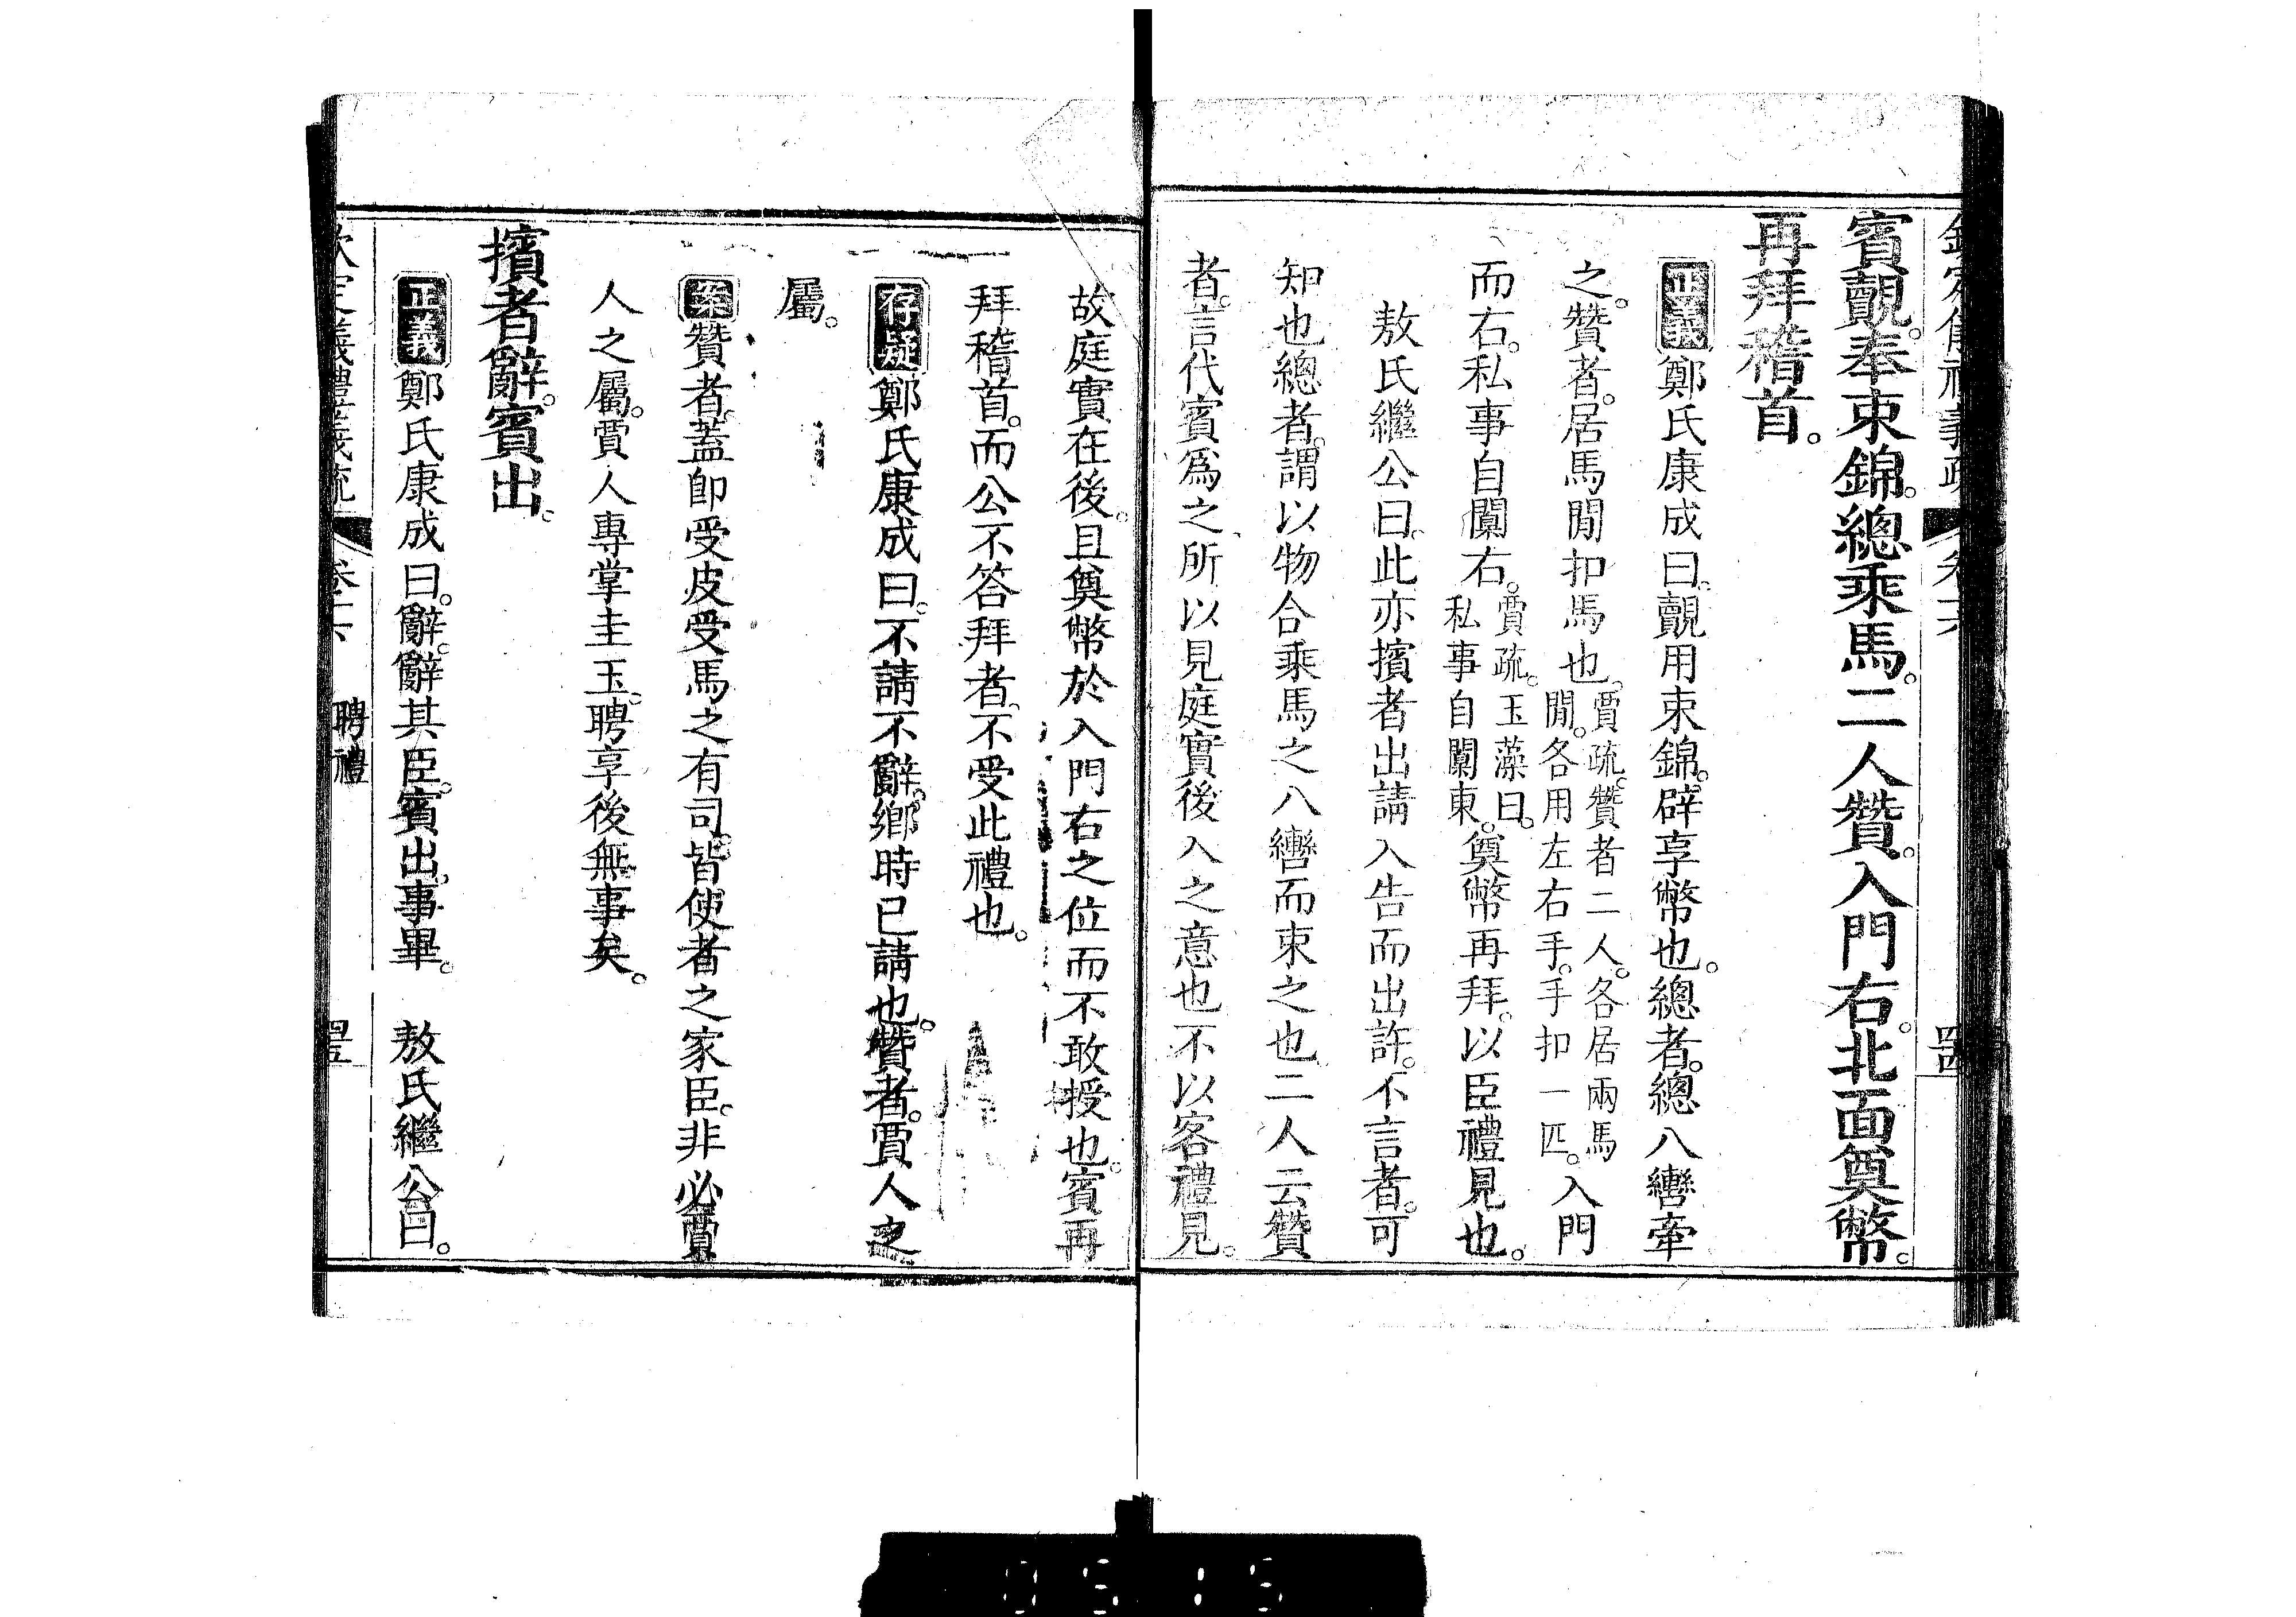 賓覿。奉束錦。總乘馬。二人贊。入門右。北面奠幣。
再拜稽首。
正義鄭氏康成曰。覿用束錦。辟享幣也。總者。總八轡牽
之。贊者。居馬閒扣馬也。賈疏。贊者二人。各居兩馬閒。各用左右手。手扣一匹。入門
而右。私事自闑右。賈疏。玉藻曰。私事自闑東。奠幣再拜。以臣禮見也。
敖氏繼公曰。此亦擯者出請入告而出許。不言者。可
知也總者。謂以物合乘馬之八轡而束之也。二人云贊
者。言代賓爲之、所以見庭實後入之意也不以客禮見。
故庭實在後。且奠幣於入門右之位而不敢授也。賓再
拜稽首。而公不答拜者。不受此禮也。
存疑鄭氏康成曰。不請不辭。鄉時已請也。贊者。賈人之
屬。
案贊者。蓋卽受皮受馬之有司。皆使者之家臣。非必賈
人之屬。賈人專掌圭玉。聘享後無事矣。
擯者辭。賓出。
正義鄭氏康成曰。辭。辭其臣。賓出。事畢。 敖氏繼公曰。
欽定儀禮義疏 卷十六 聘禮 罣